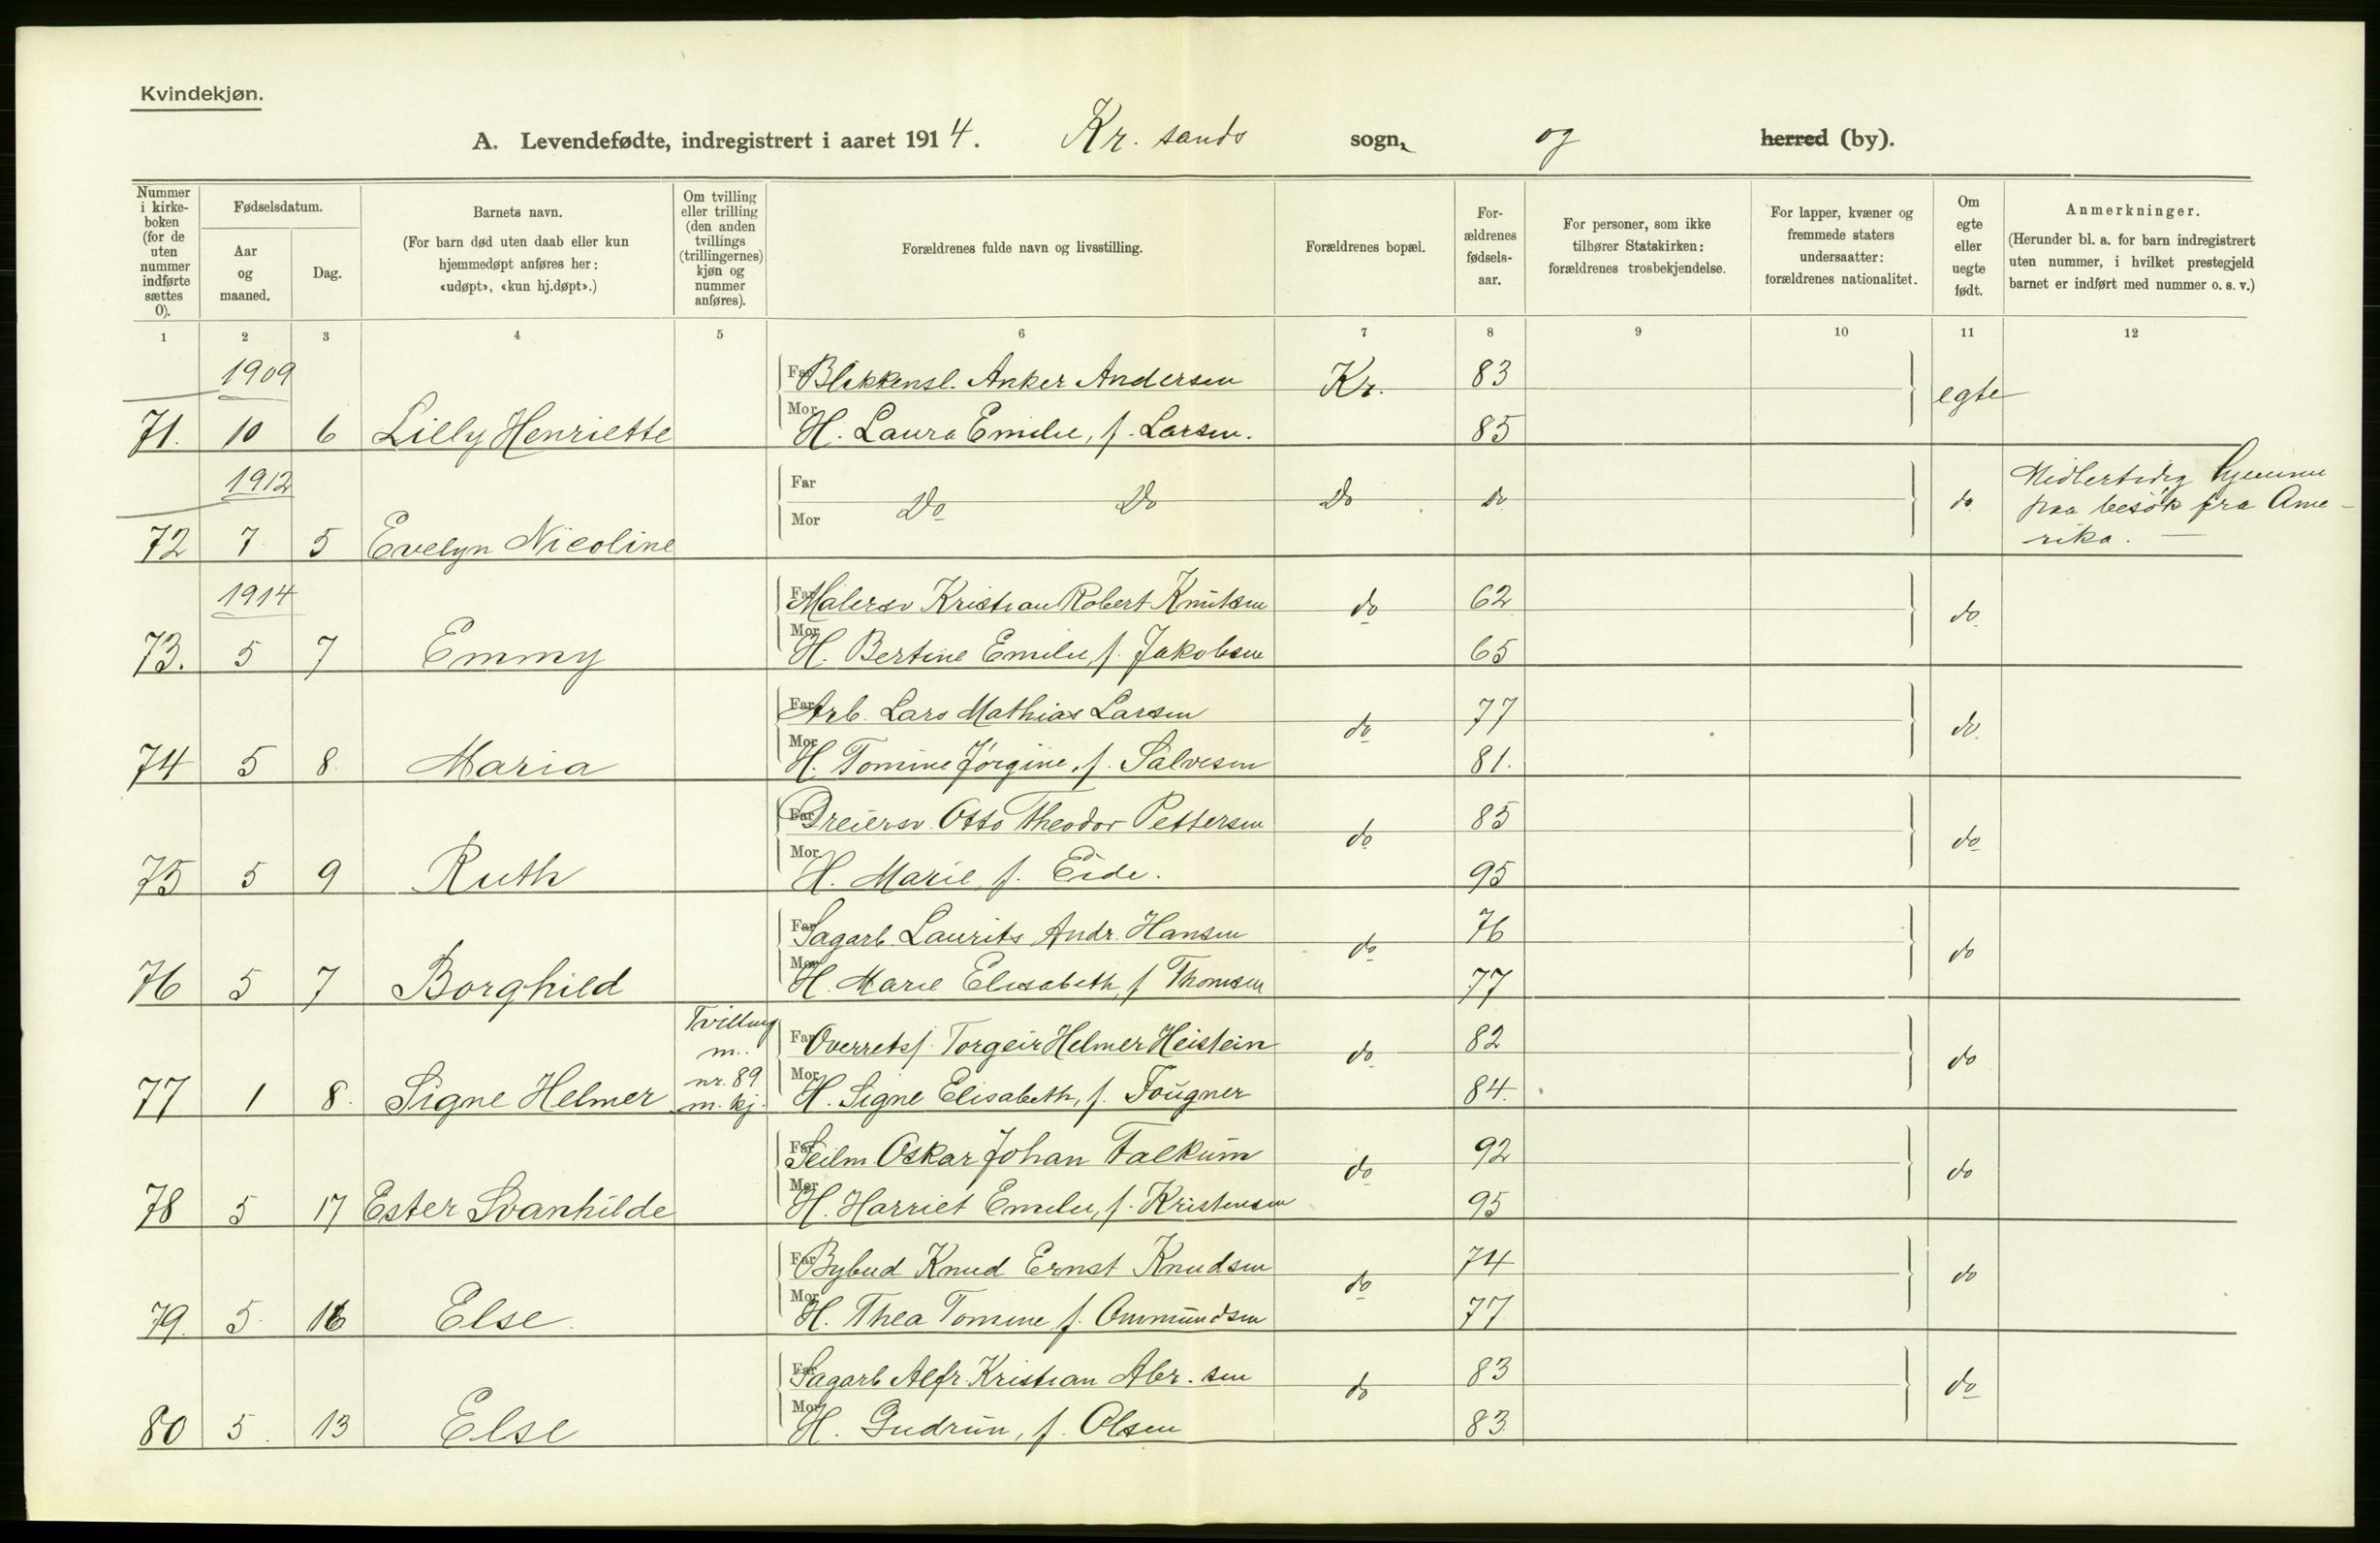 Kvindekjøn.
A. Levendefødte, indregistrert i aaret 1914. Kr. sands sogn, og herred (by).
Nummer i kirke-boken (for de uten nummer indførte sættes 0).
Fødselsdatum.
Aar og maaned.
Dag.
Barnets navn.
(For barn død uten daab eller kun hjemmedøpt anføres her: «udøpt», «kun hj.døpt».)
Om tvilling eller trilling (den anden tvillings (trillingernes) kjøn og nummer anføres).
Forældrenes fulde navn og livsstilling.
Forældrenes bopæl.
For-ældrenes fødsels-aar.
For personer, som ikke tilhører Statskirken: forældrenes trosbekjendelse.
For lapper, kvæner og fremmede staters undersaatter: forældrenes nationalitet.
Om egte eller uegte født.
Anmerkninger.
(Herunder bl. a. for barn indregistrert uten nummer, i hvilket prestegjeld barnet er indført med nummer o. s. v.)
1 2 3 4 5 6 7 8 9 10 11 12
1909 Far Blikkensl. Anker Andersen Kr. 83 egte
71. 10 6 Lilly Henriette Mor H. Laura Emilie, f. Larsen. 85
1912 Far Do Do Do do do Midlertidig hjemme
Mor paa besøk fra Ame-
72 7 5 Evelyn Nicoline rika.
1914 Far Malersv Kristian Robert Knutsen do 62 do
73. 5 7 Emmy Mor H. Bertine Emilie, f. Jakobsen 65
Far Arb. Lars Mathias Larsen do 77 do
74 5 8 Maria Mor H. Tomine Jørgine, f. Salvesen 81.
Far Dreiersv. Otto Theodor Pettersen do 85 do
75 5 9 Ruth Mor H. Marie, f. Eide. 95
Far Sagarb. Laurits Andr. Hansen do 76 do
76 5 7 Borghild Mor H. Marie Elisabeth, f Thomsen 77
Tvilling
m. Far Overretsf. Torgeir Helmer Heistein do 82 do
nr. 89
77 1 8. Signe Helmer m. kj. Mor H. Signe Elisabeth, f. Fougner 84.
Far Seilm Oskar Johan Falkum do 92 do
78 5 17 Ester Svanhilde Mor H. Harriet Emilie, f. Kristensen 95
Far Bybud Knud Ernst Knudsen do 74 do
79. 5. 16 Else. Mor H. Thea Tomine f. Ommundsen 77
Far Sagarb Alfr. Kristian Abr.sen do 83 do
80 5. 13 Else Mor H. Gudrun, f. Olsen 83.